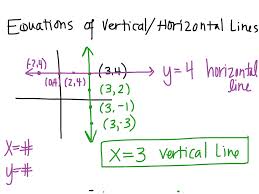 Equations of Vertical/Horizontal Lines
(-2,4)
(0,4) (2,4)
(3,4)
y=4 horizontal line
(3,2)
(3,-1)
(3,-3)
x=#
y=#
x=3 vertical line